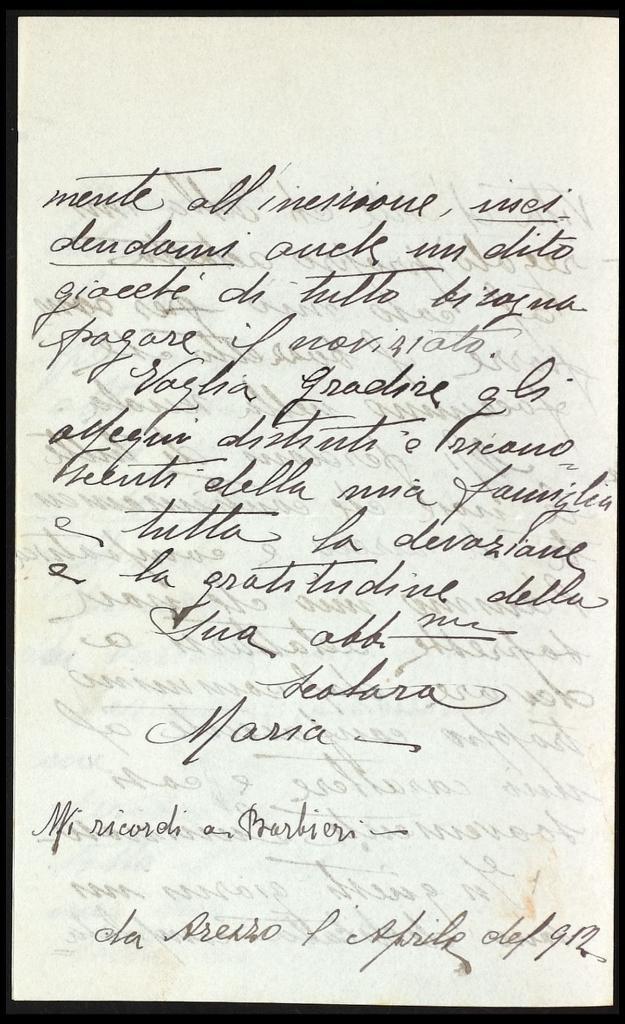 mente all'incisione, inci-
dendomi anche un dito
giacché di tutto bisogna
pagare il noviziato.
Voglia gradire gli
ossequi distinti e ricono=
scenti della mia famiglia
e tutta la devozione
e la gratitudine della
Sua obb.ma
scolara
Maria
Mi ricordi a Barbieri
da Arezzo l'Aprile del 912